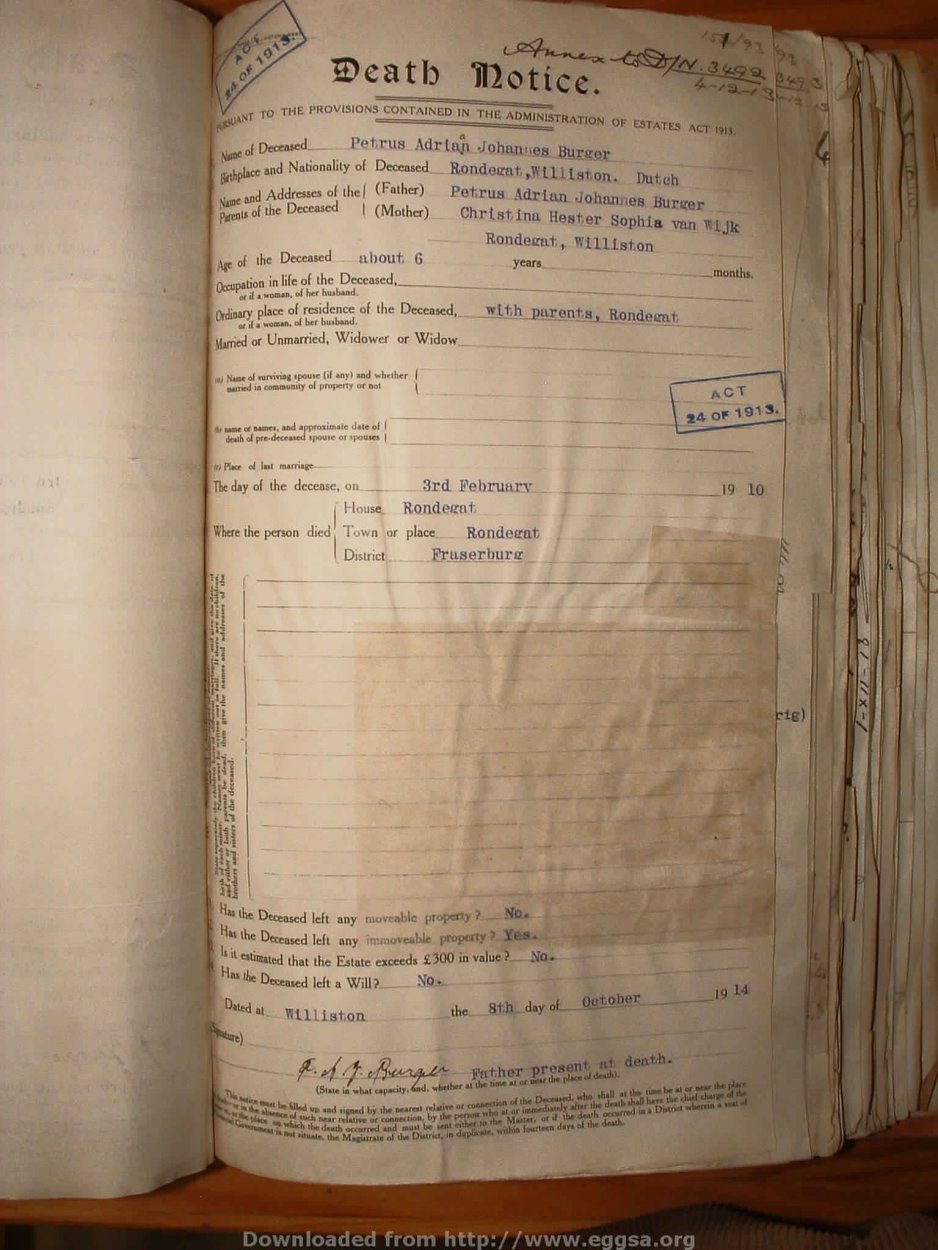 ACT
24 OF 1913.
Annex to D/N. 3492
4-12-13
Death Notice.
PURSUANT TO THE PROVISIONS CONTAINED IN THE ADMINISTRATION OF ESTATES ACT 1913.
Name of Deceased Petrus Adrian Johannes Burger
Birthplace and Nationality of Deceased Rondegat, Williston. Dutch
Name and Addresses of the (Father) Petrus Adrian Johannes Burger
Parents of the Deceased (Mother) Christina Hester Sophia van Wijk
Rondegat, Williston
Age of the Deceased about 6 years months.
Occupation in life of the Deceased,
or if a woman, of her husband.
Ordinary place of residence of the Deceased, with parents, Rondegat
or if a woman, of her husband.
Married or Unmarried, Widower or Widow
(a) Name of surviving spouse (if any) and whether
married in community of property or not
ACT
24 OF 1913.
(b) name or names, and approximate date of
death of pre-deceased spouse or spouses
(c) Place of last marriage
The day of the decease, on 3rd February 19 10
House Rondegat
Where the person died Town or place Rondegat
District Fraserburg
rig)
1-XII-18
and either or both parents be dead, then give the names and addresses of the
brothers and sisters of the deceased.
Has the Deceased left any moveable property? No.
Has the Deceased left any immoveable property? Yes.
Is it estimated that the Estate exceeds £300 in value? No.
Has the Deceased left a Will? No.
Dated at Williston the 8th day of October 19 14
(Signature)
P. A. J. Burger Father present at death.
(State in what capacity, and, whether at the time at or near the place of death).
This notice must be filled up and signed by the nearest relative or connection of the Deceased, who shall at the time be at or near the place
death—or in the absence of such near relative or connection, by the person who at or immediately after the death shall have the chief charge of the
house, or the place on which the death occurred and must be sent either to the Master, or if the death occurred in a District wherein a seat of
Government is not situate, the Magistrate of the District, in duplicate, within fourteen days of the death.
Downloaded from http://www.eggsa.org